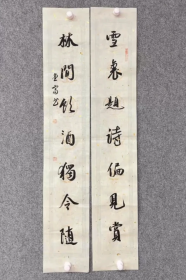 雪裏題詩偏見賞
林間飲酒獨令隨